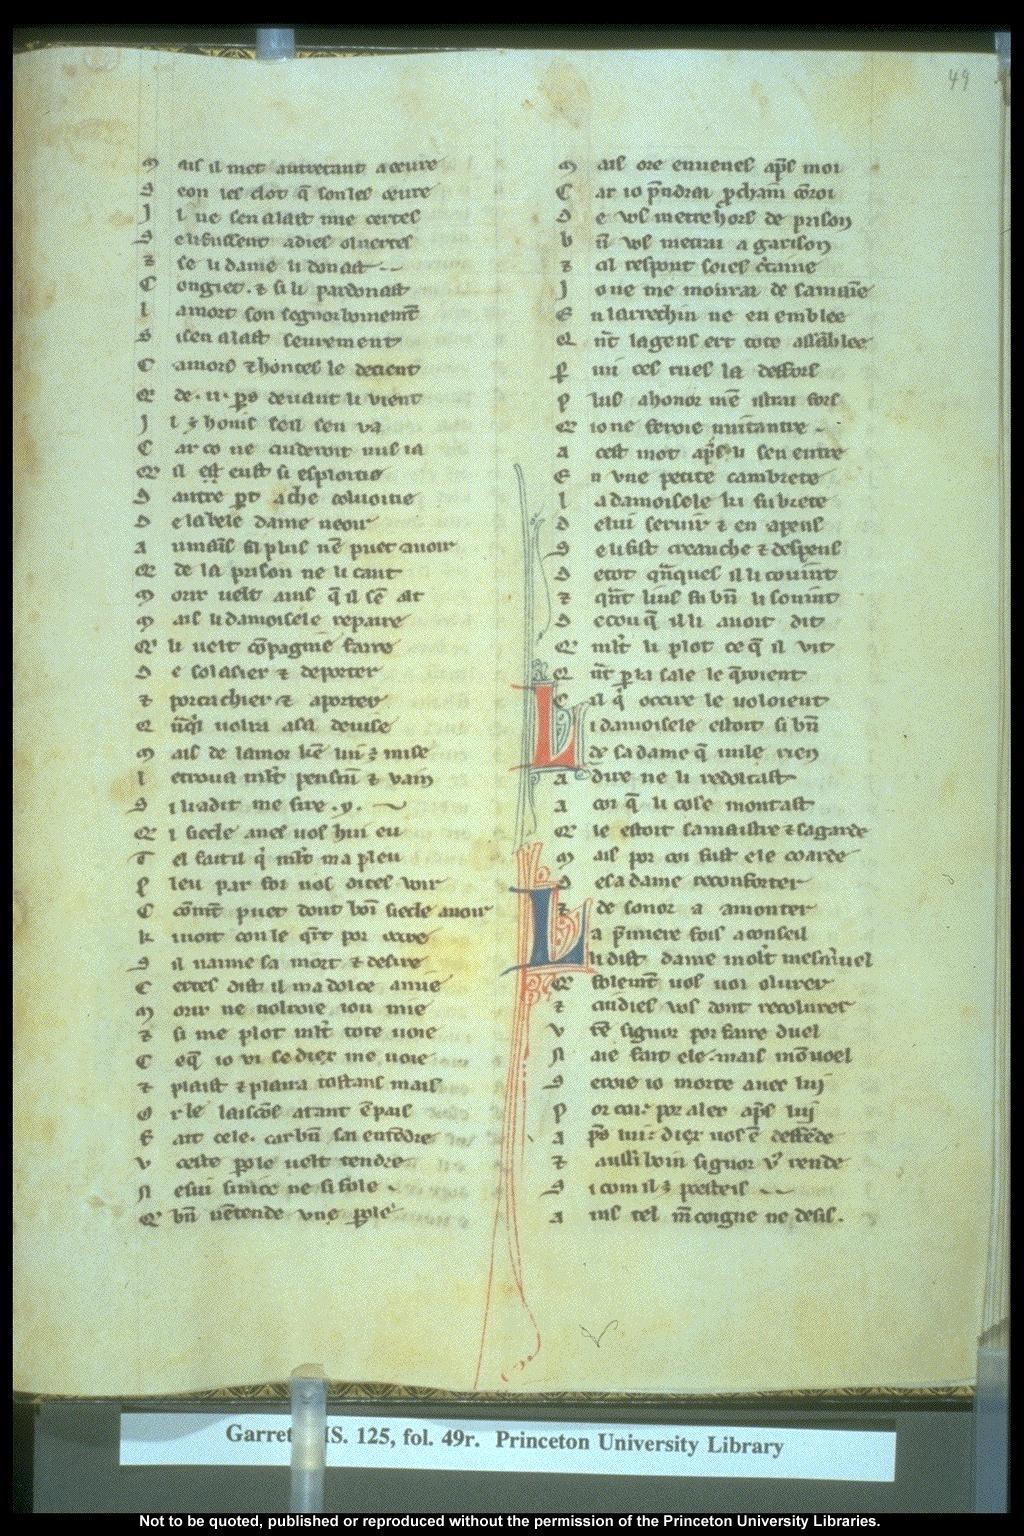 49
M ais il met autretant a œuure
S eon les clot q̄ son les œuure
J l ne sen alast mie certes
S e li fussent adies ouuertes
Z se li dame li donast
C ongiet . & si li pardonast
L amort son segnor bonemēt
S i sen alast seurement
C amors & hontes le detient
Q de .ii. p̱s deuant li vient
J l ē honis sen sen va
C ar co ne cuideroit nus ia
Q il est eust si esploitie
D autre p̱t a che couoitie
D e la bele dame ueoir
A umaīs si plus nē puet auoir
Q de la prison ne li caut
M orir uelt ains q̄ il sē alt
M ais li damoisele repaire
Q li uelt cōpagnie faire
D e solasier & deporter
Z porcachier & aporter
Q n̄q̄l uolra asa deuise
M ais de lamor kē lui ē mise
L e troua ml̄t pensiu & vain
S i li a dit me sire . y .
Q l siecle aues uos hui eu
T el fait il q̄ ml̄t ma pleu
P leu par foi uos dites uoir
C ōmēt puet dont boī siecle auoir
K i uoit con le q̄rt por ocire
S il naime sa mort & desire
C ertes dist il ma dolce amie
M orir ne uolroie iou mie
Z si me plot ml̄t tote uoie
C eq̄ io vi se diex me uoie
Z plaist & plaira tostans mais
O r le laiscōs atant ēpais
F ait cele . car bn̄ sai entēdre
V ceste p̱ole uelt tendre
N esui si nice ne si fole
Q bn̄ nētende vne p̱ole
M ais ore enuenes ap̄s moi
C ar io p̄ndrai p̱chaīn ōroi
D e vos metre hors de prison
B n̄ vos metrai a garison
Z cil respont soies c̄taine
J o ne me mourai de samaīe
E n larrechin ne en emblee
Q n̄t la gens ert tote assāblee
P mi ces rues la deffors
P lus ahonor mē istrai fors
Q io ne feroie nuitantre
A cest mot ap̄s li sen entre
E n vne petite cambrete
L a damoisele ki fu brete
D elui seruir & en apens
S e li fist creanche & despens
D etot qn̄ques il li couint
Z qn̄t lius fu bn̄ li souint
D e couq̄ il li auoit dit
Q ml̄t li plot ceq̄ il vit
Q n̄t p̱ la sale le q̄roient
C il q̄ ocire le uoloient
L i damoisele estoit si bn̄
de sa dame q̄ nule rien
A dire ne li redoutast
A coi q̄ li cose montast
Q le estoit sa maistre & sa garde
M ais por coi fust ele coarde
D e sa dame reconforter
Z de sonor a amonter
L a p̄miere fois aconseil
li dist dame molt mesm̄uel
Q folemt̄ uos uoi ourer
Z cuidies vos dont recouurer
V rē signor por faire duel
N aie fait ele mais mō uoel
S eroie io morte auec lui
P or coi . por aler ap̄s lui
A p̄s lui : diex uos ē deffēde
Z aussi boin signor v̄ rende
S i com il ē poesteis
A ins tel mēcoigne ne desis .
Garrett MS. 125, fol. 49r. Princeton University Library
Not to be quoted, published or reproduced without the permission of the Princeton University Libraries.